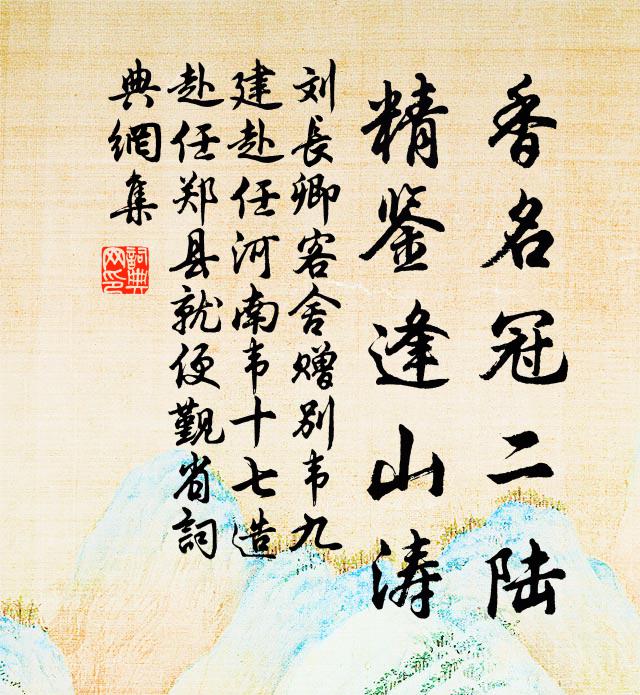 香名冠二陆
精鉴逢山涛
刘長卿客舍赠别韦九
建赴任河南韦十七造
赴任郑县就便觐省詞
典網集
詞典
网印